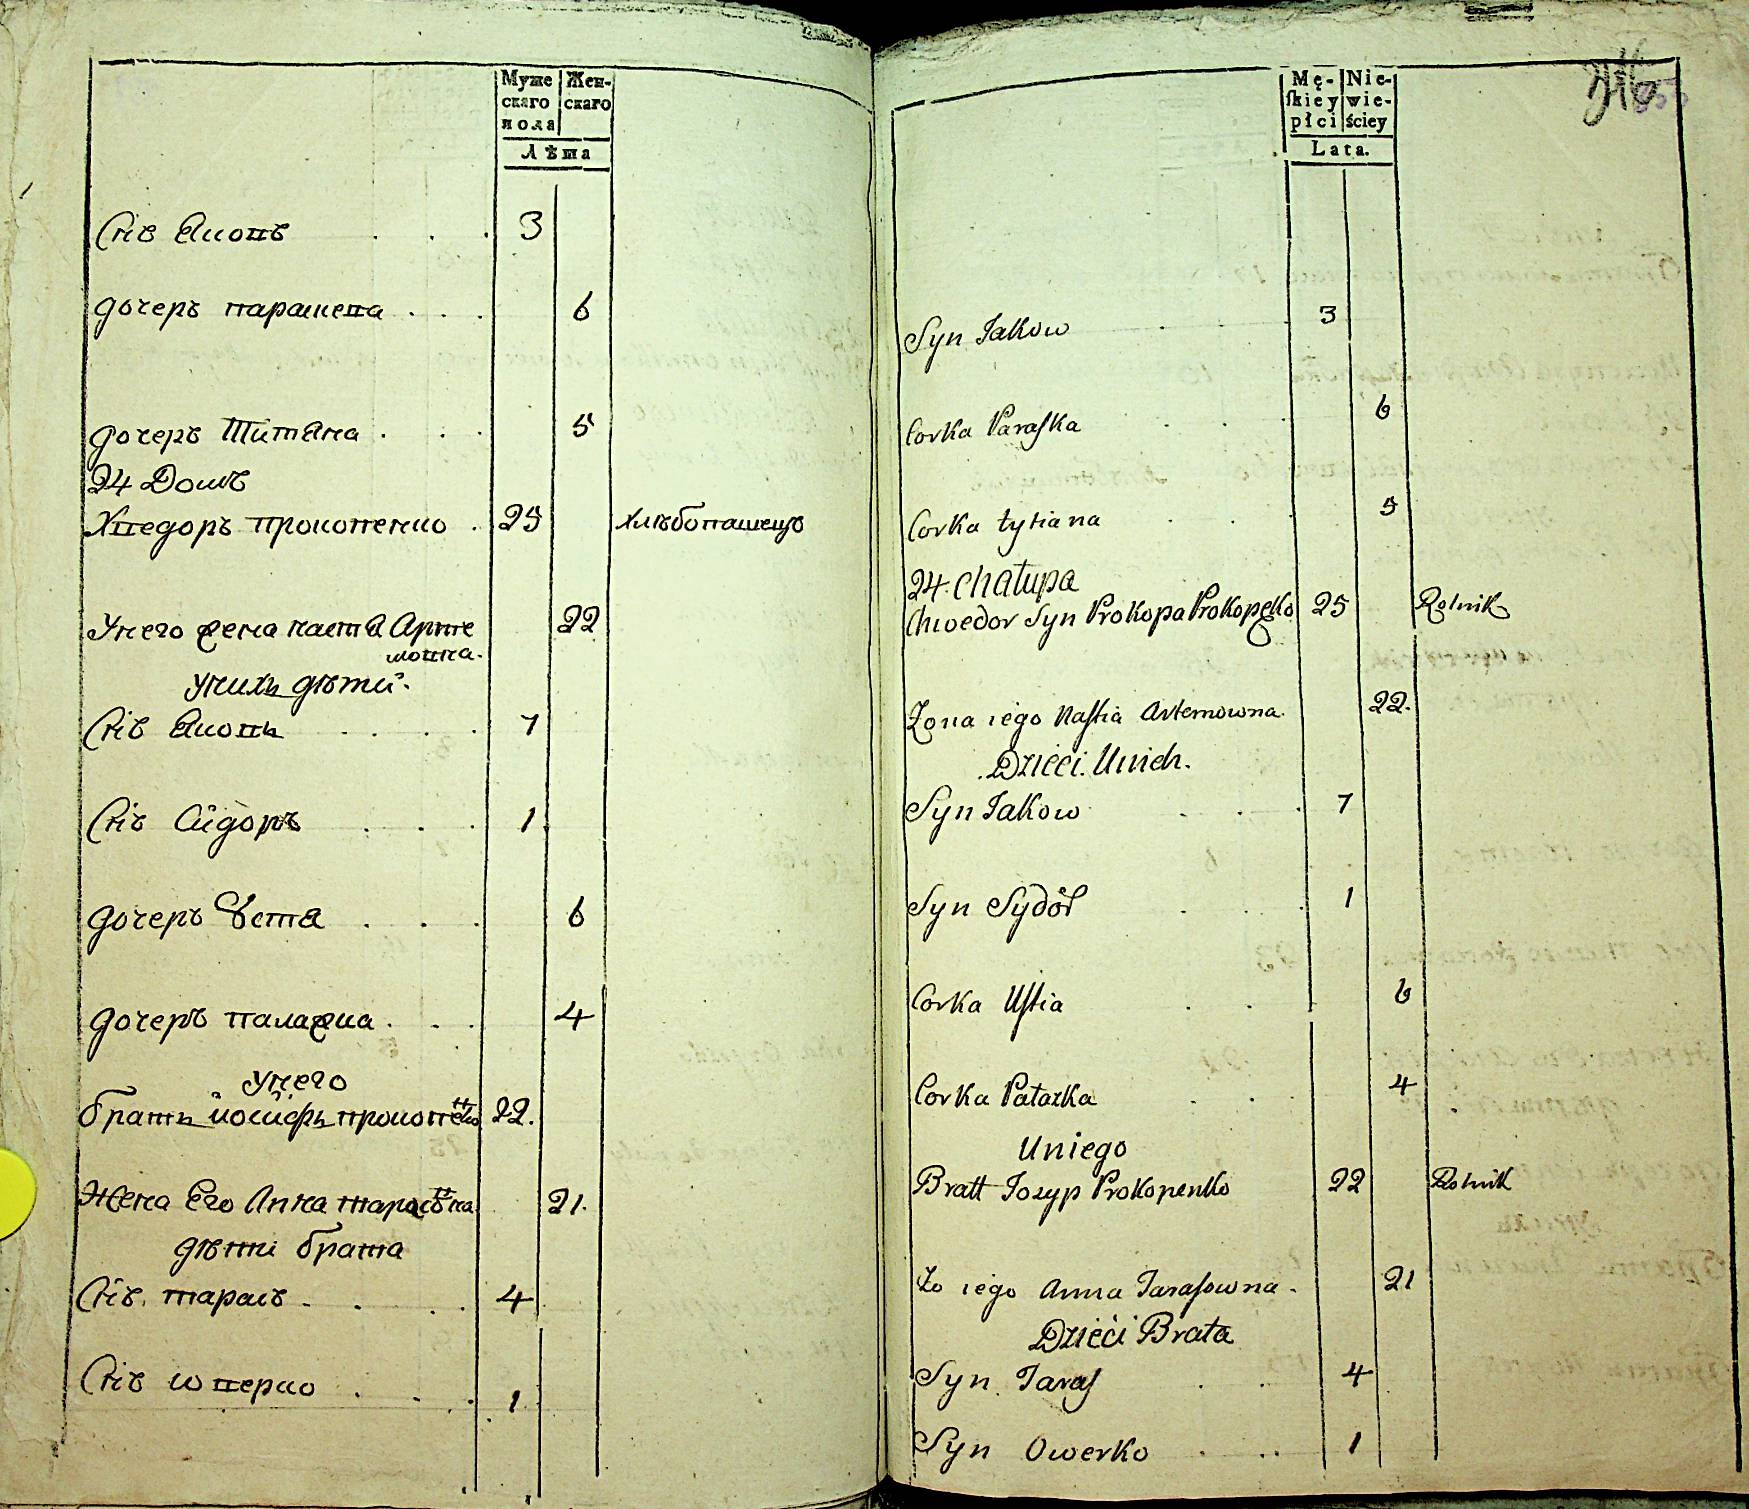 Муже Жен-
скаго скаго
пола
Лѣта
Снъ Яковъ . . . 3
дочеръ парасшева . . . 6
дочеръ Титяна . . . 5
24 Домъ
Хведоръ прокопенко . 25 хлѣбопашецъ
Унего жена настя Арте 22
мовна.
Унихъ дѣти.
Снъ Яковъ . . . 7
Снъ Сидоръ . . . 1
дочеръ Устя . . . 6
дочеръ палажка . . . 4
Унего
братъ йосифъ прокопенко 22.
Жена Его Анна тарасовна 21.
дѣти брата
Снъ тарасъ . . . 4
Снъ юверко . . . 1
Mę- Nie-
ſkiey wie-
płci ściey
Lata.
Syn Jakow . . . 3
Corka Paraſka . . . 6
Corka tytiana . . . 5
24. Chałupa
Chwedor Syn Prokopa Prokopęko 25 Rolnik
Żona iego Naſtia Artemowna. 22.
Dzieci Unich.
Syn Jakow . . . 7
Syn Sydór . . . 1
Corka Uſtia . . . 6
Corka Pałazka . . . 4
Uniego
Bratt Jozyp Prokopenko 22 Rolnik
Żo iego Anna Taraſowna . 21
Dzieci Brata
Syn Taraſ . . . 4
Syn Owerko . . . 1